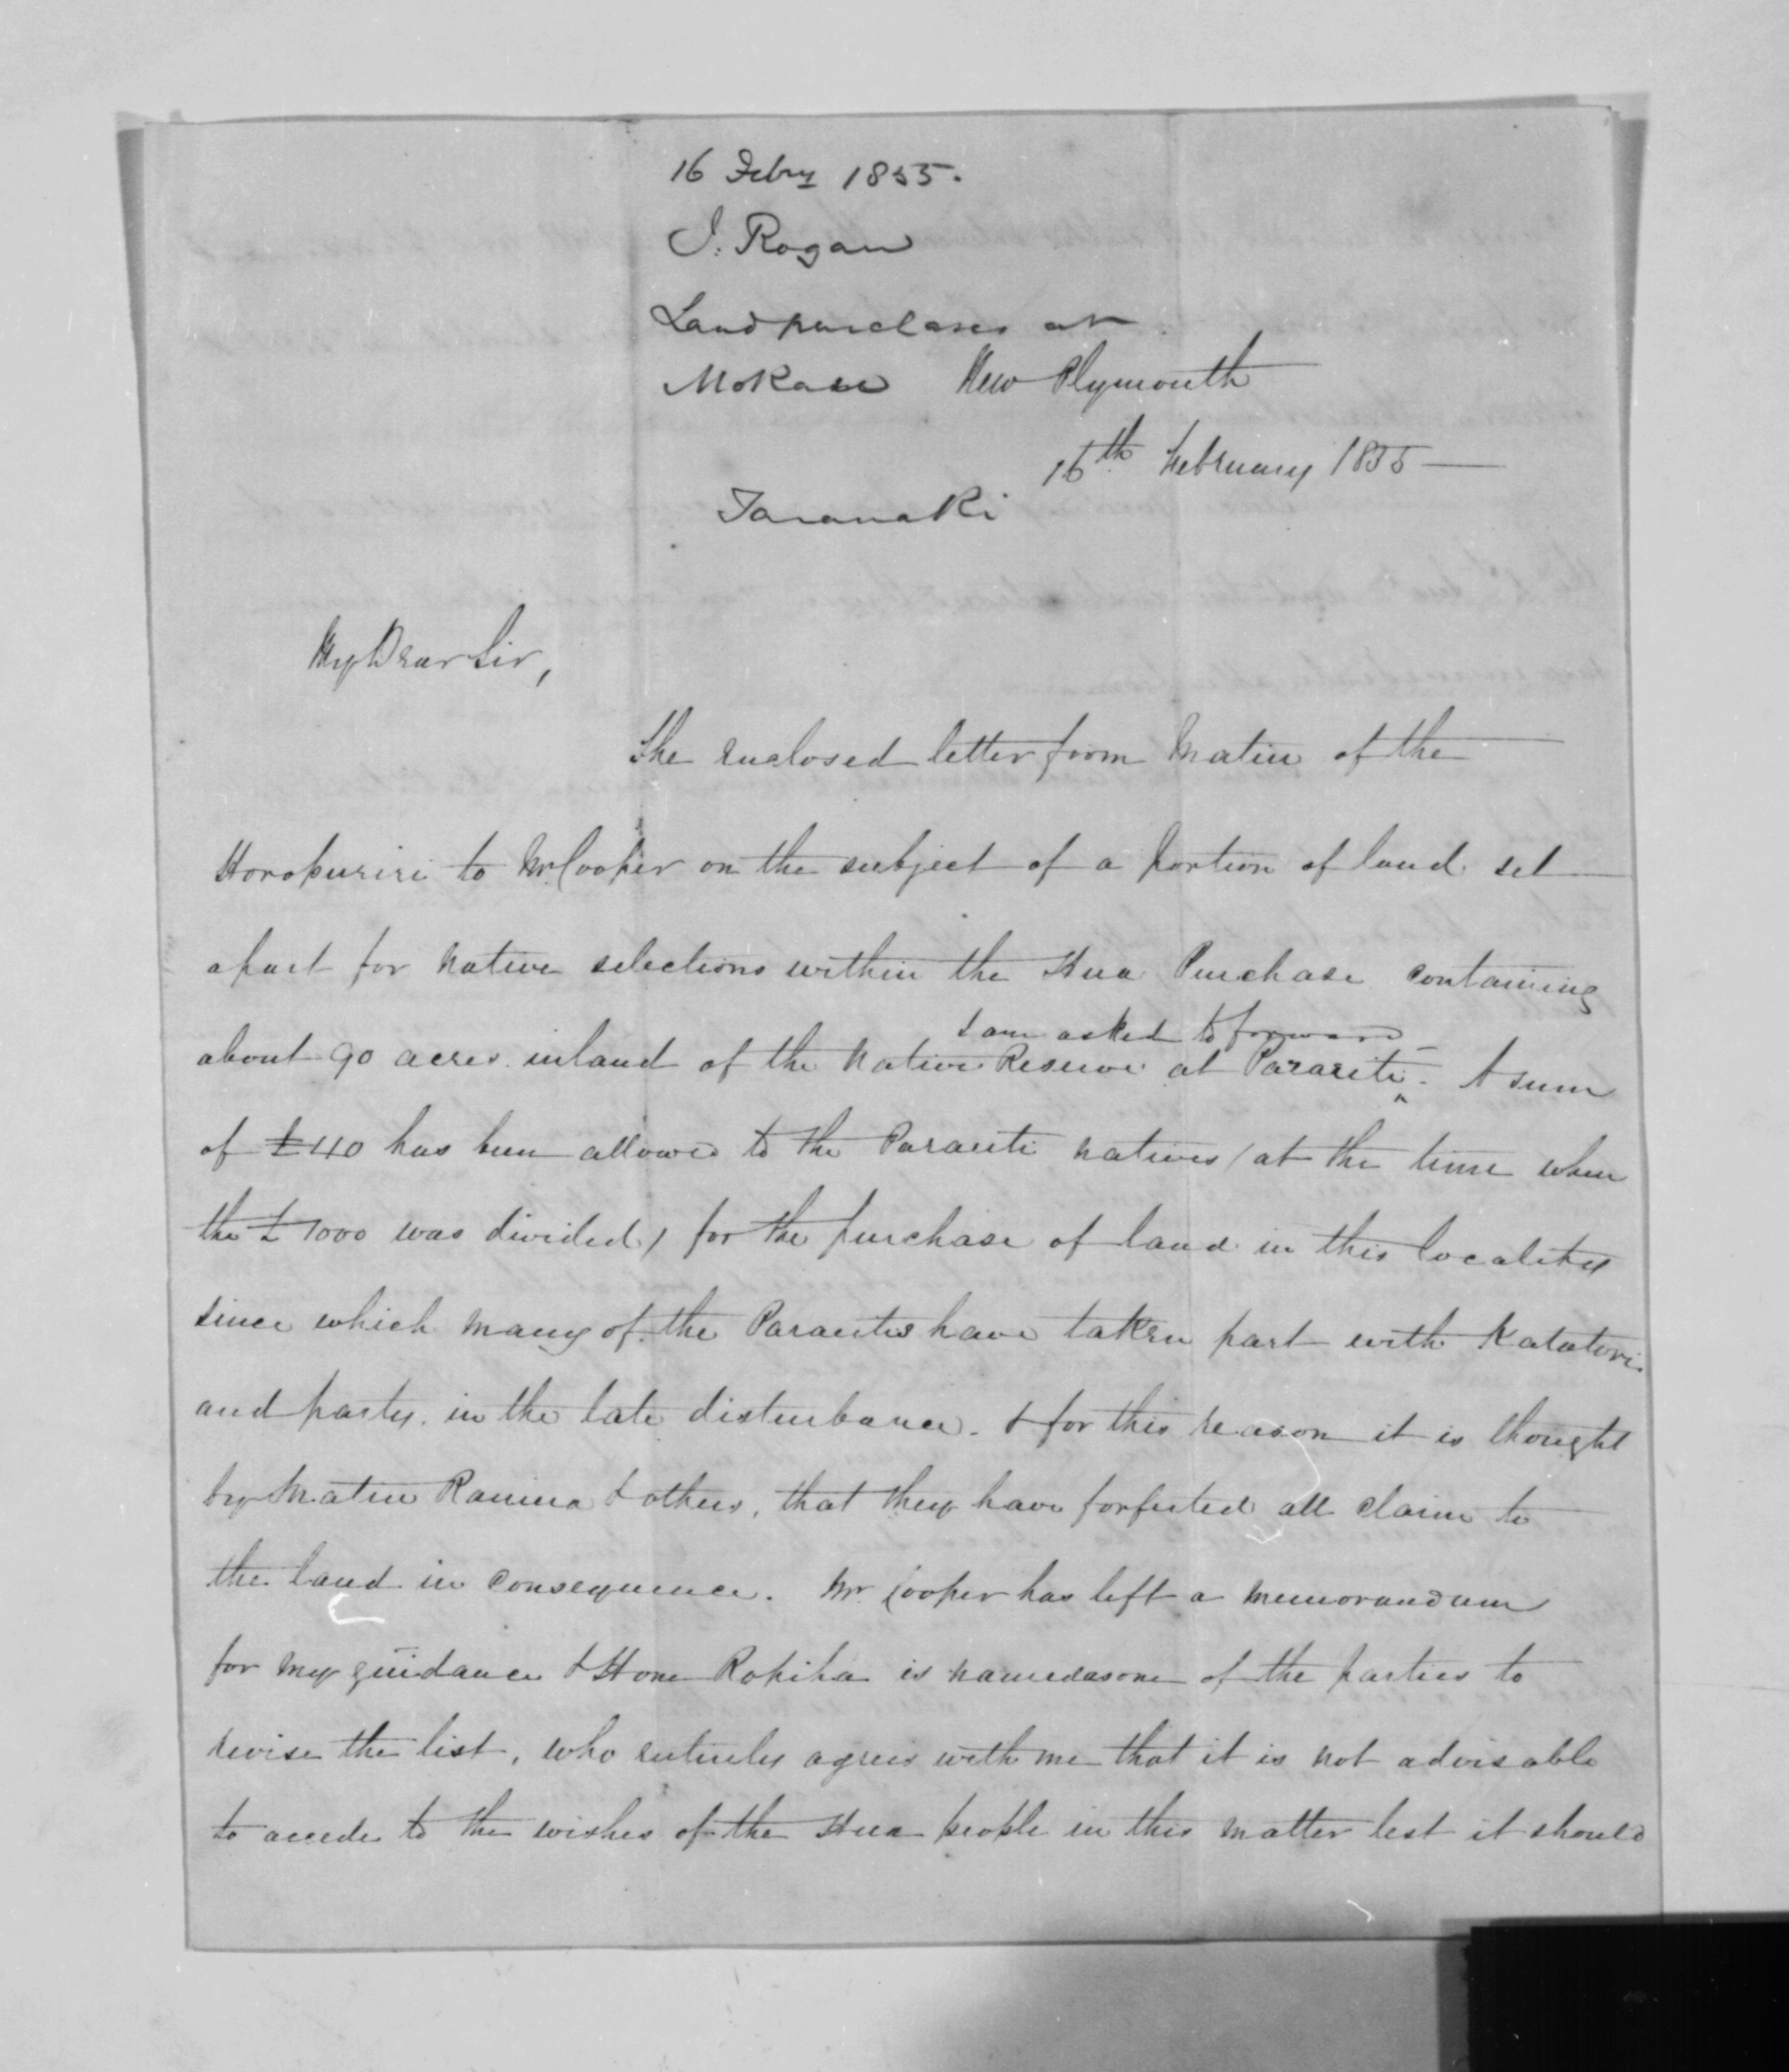 16 Febry 1855.
J. Rogan
Land purchases at
Mokau New Plymouth
16th February 1855
Taranaki
My Dear Sir,
The enclosed letter from Matiu of the
Horopuriri to Mr. Cooper on the subject of a portion of land set
apart for native selections within the Hua Purchase containing
I am asked to forward
about 90 acres inland of the Native Reserve at Parariti ^. A sum
of £40 has been allowed to the Paraiti natives (at the time when
the £1000 was divided) for the purchase of land in this locality
since which many of the Paraitis have taken part with Katatori
and party in the late disturbance. & for this reason it is thought
by Matiu Raniera & others, that they have forfeited all claim to
the land in consequence. Mr. Cooper has left a memorandum
for my guidance & Hone Ropiha is named as one of the parties to
revise the list, who entirely agrees with me that it is not advisable
to accede to the wishes of the Hua people in this matter lest it should